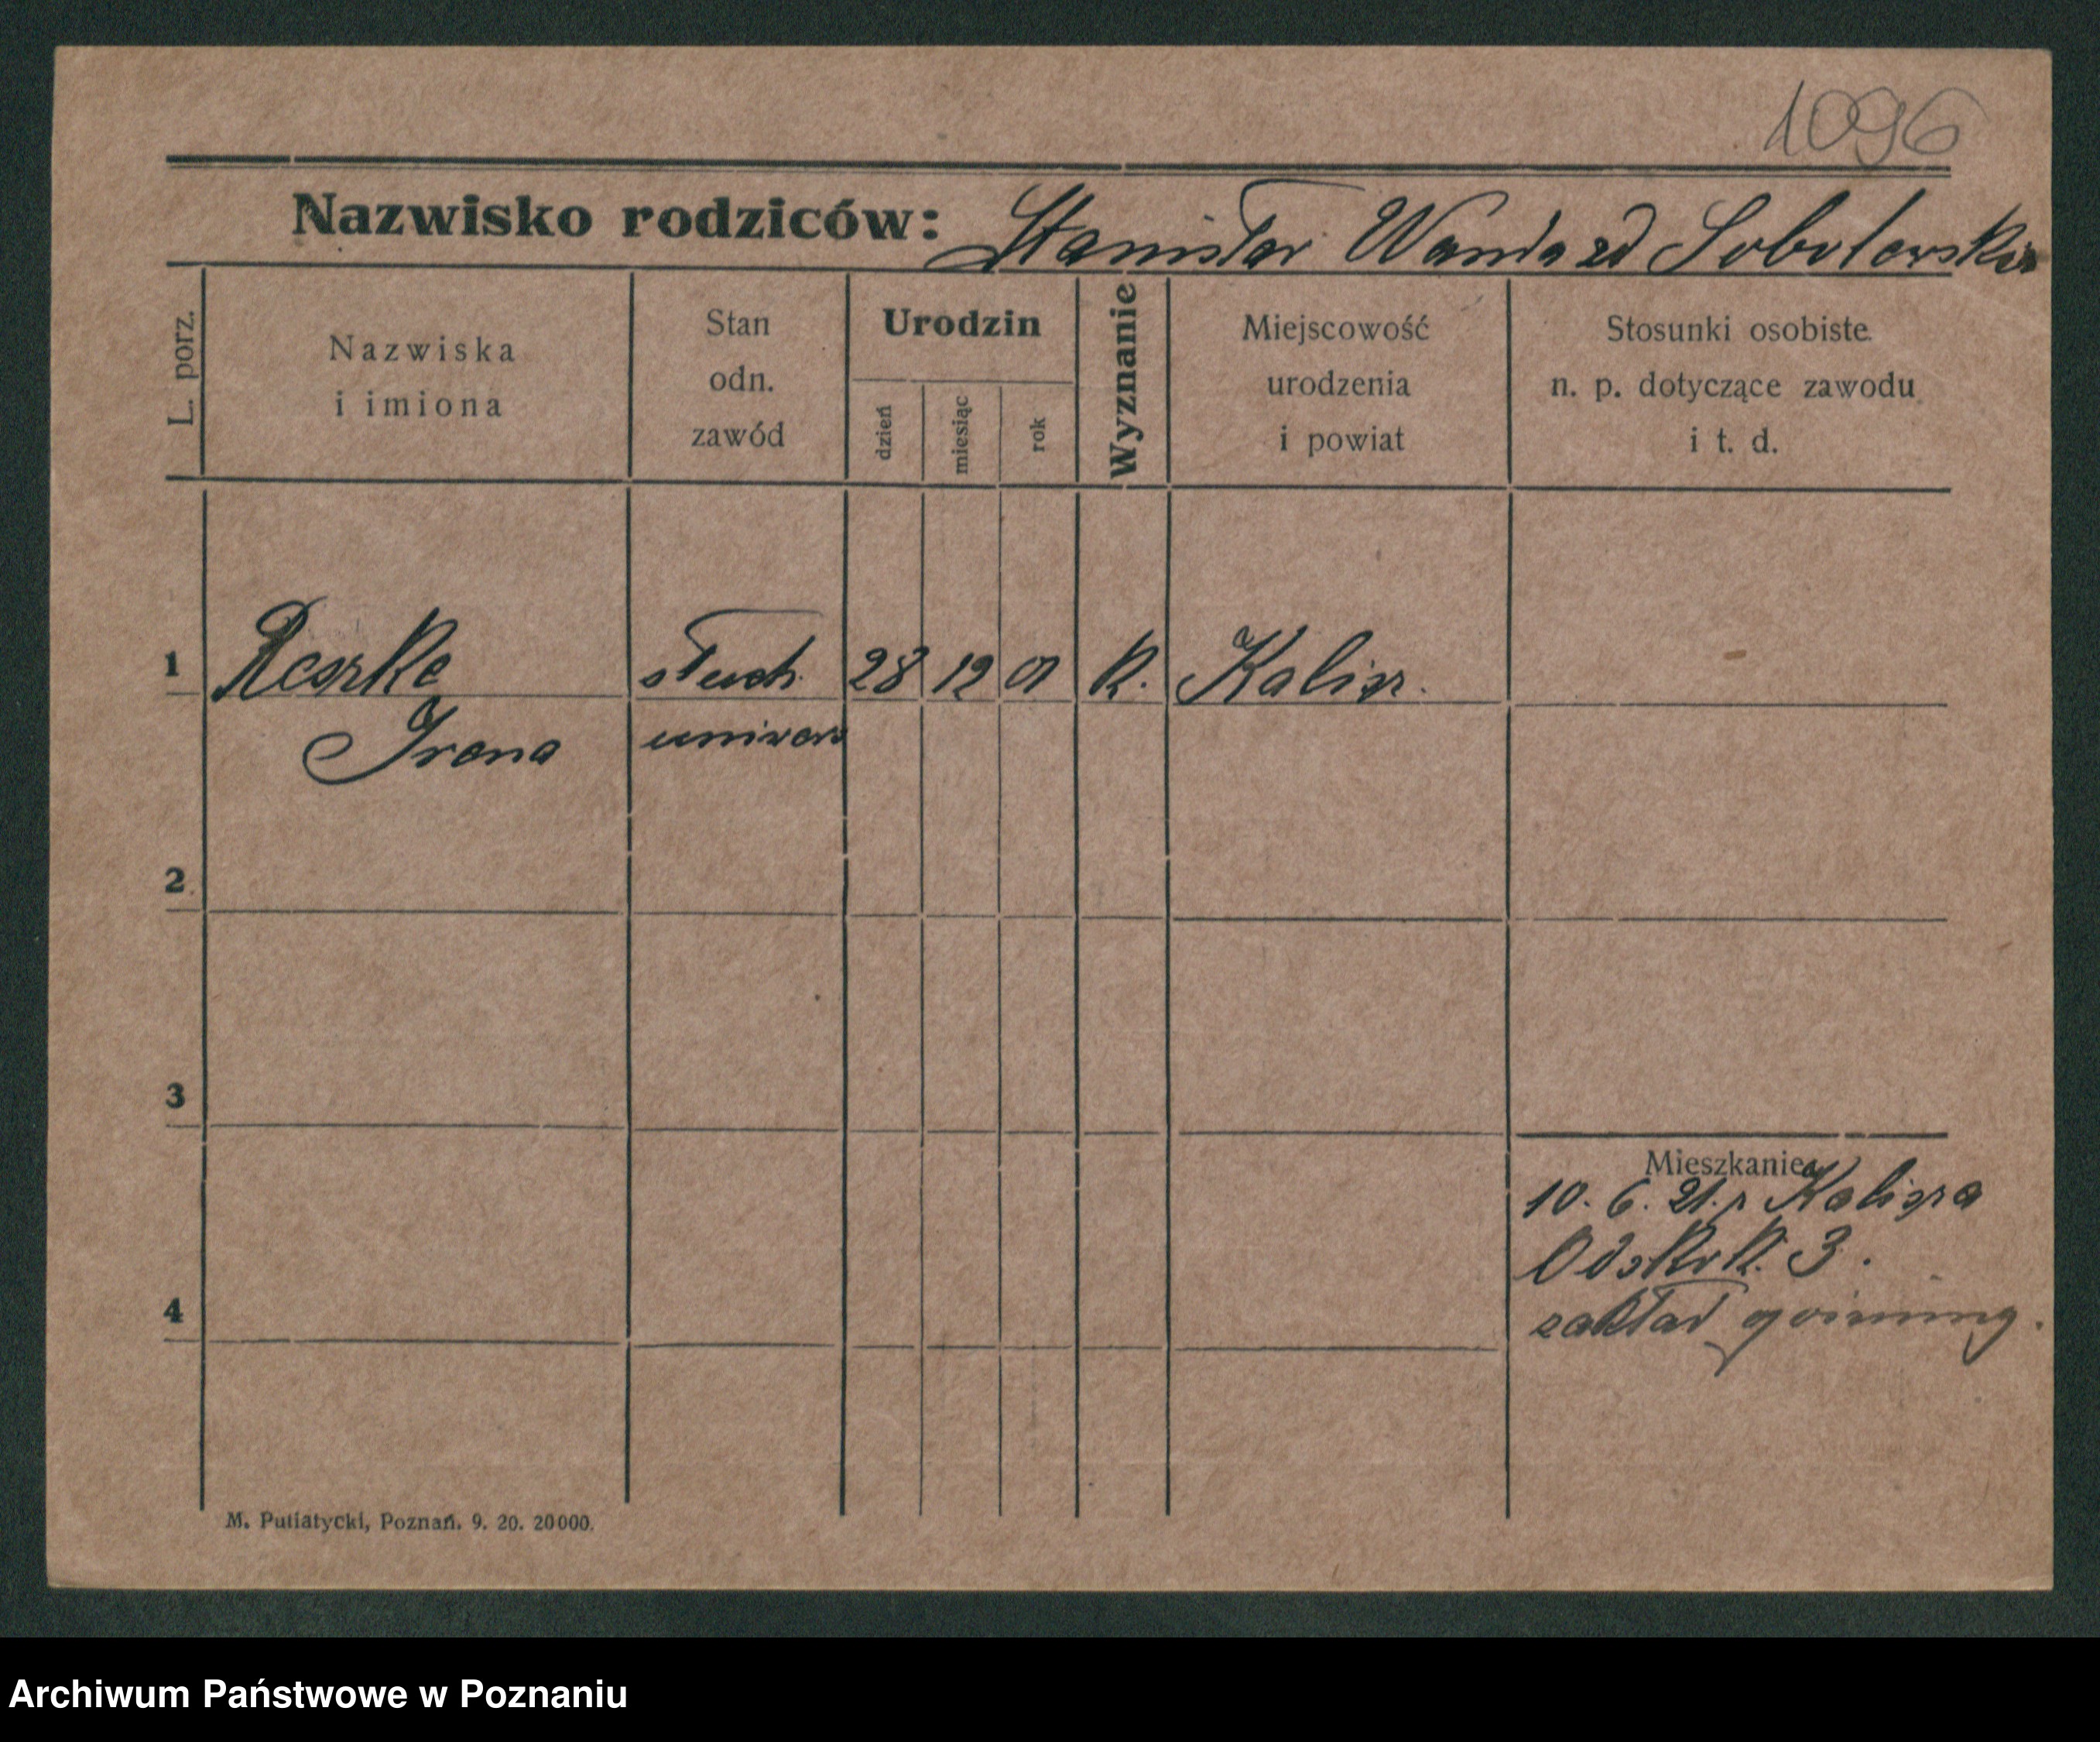 1096
Nazwisko rodziców: Stanisław Wanda zd Sobolewska
L. porz.
Nazwiska
i imiona
Stan
odn.
zawód
Urodzin
dzień
miesiąc
rok
Wyznanie
Miejscowość
urodzenia
i powiat
Stosunki osobiste
n. p. dotyczące zawodu
i t. d.
1 Reszke słuch. 28 12 01 k. Kalisz.
Irena uniwers
2
3
4
Mieszkanie
10. 6. 21. z Kalisza
3.
zakład
M. Putiatycki, Poznań. 9. 20. 20000.
Archiwum Państwowe w Poznaniu